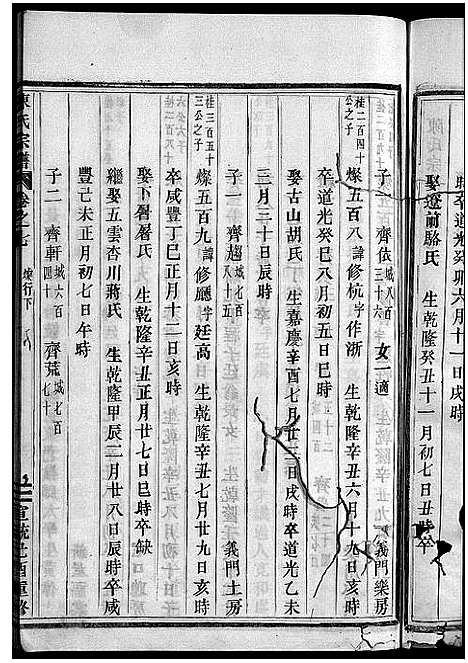 時卒道光癸卯六月十一日戌時
娶邊前駱氏 生乾隆癸丑十一月初七日丑時卒
子一 齊依城八百三十六 女一適 義門樂房
桂二百四十公之子 燦五百八 諱修杭字作浙 生乾隆辛丑六月十九日亥時
卒道光癸巳八月初五日巳時
娶古山胡氏 生嘉慶辛酉七月二十二日戌時卒道光乙未
三月三十日辰時
子一 齊超城七百八十五 義門土房
桂三百五十三公之子 燦五百九 諱修廳字廷高 生乾隆辛丑七月廿九日亥時
卒咸豐丁巳正月十二日亥時
娶下厝屠氏 生乾隆辛丑正月廿七日巳時卒缺
繼娶五雲杏川蔣氏 生乾隆甲辰二月廿八日辰時卒咸
豐己未正月初七日午時
子二 齊軒城六百 齊荒城七百七十
陳氏宗譜 卷之七 燦行下 八 宣統己酉重修